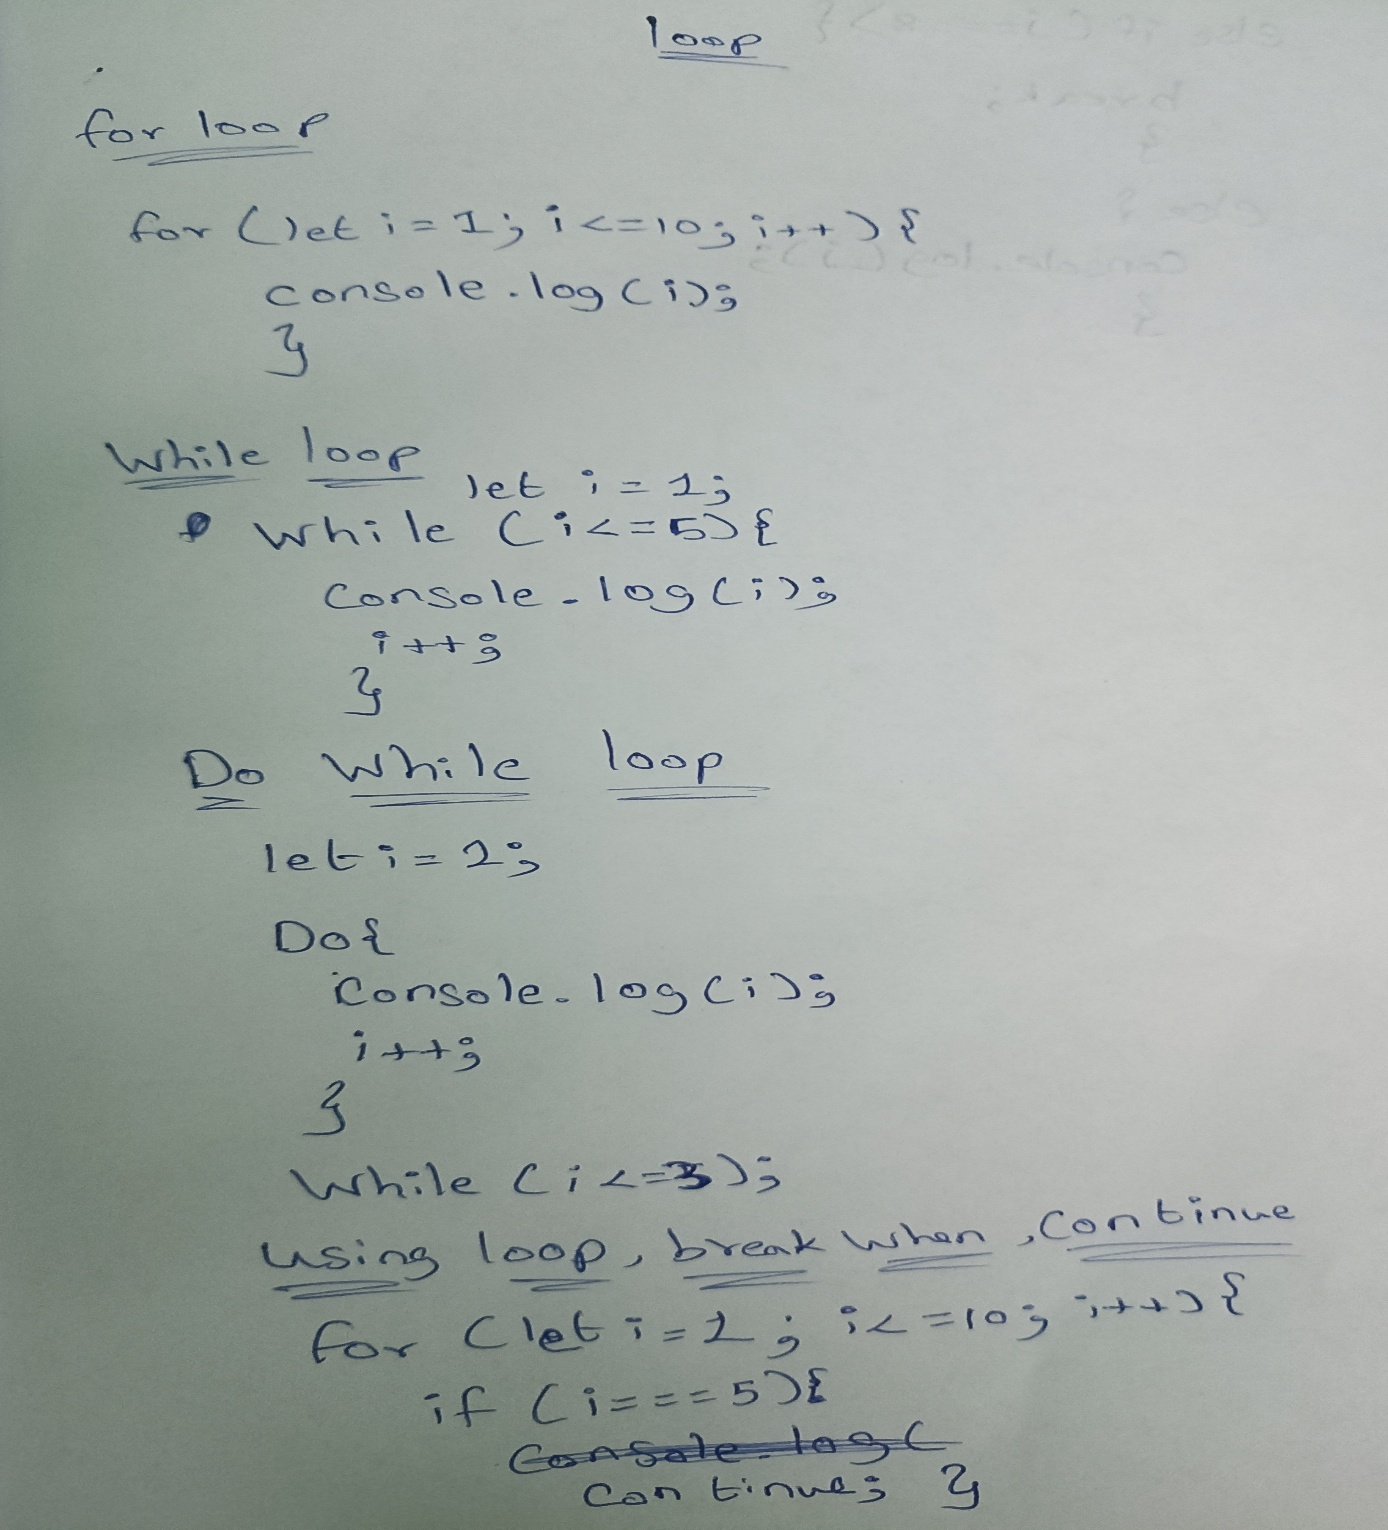 loop
for loop
for (let i = 1; i <= 10; i++) {
console.log(i);
}
While loop
let i = 1;
while (i <= 5) {
console.log(i);
i++;
}
Do while loop
let i = 1;
Do {
console.log(i);
i++;
}
while (i <= 3);
using loop, break when, continue
for (let i = 1; i <= 10; i++) {
if (i === 5) {
console.log(
continue; }